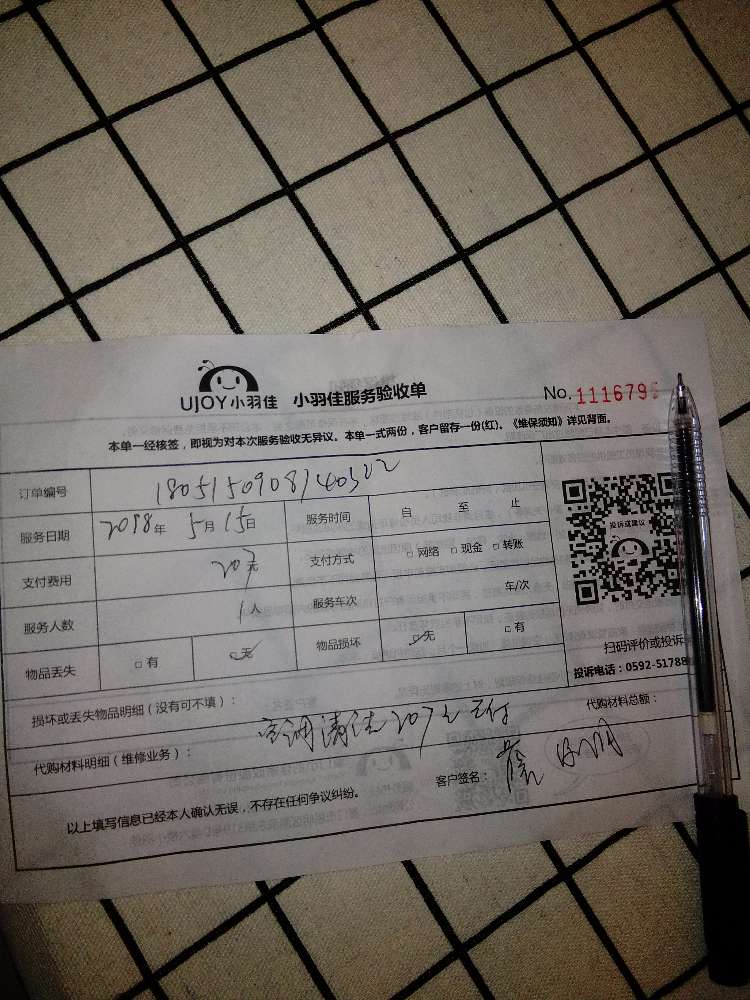 UJOY小羽佳 小羽佳服务验收单 No.111679
本单一经核签，即视为对本次服务验收无异议。本单一式两份，客户留存一份(红)。《维保须知》详见背面。
订单编号 180515090814
服务日期 2018年 5月 15日 服务时间 自 至 止
支付费用 207元 支付方式 □网络 □现金 □转账
服务人数 1人 服务车次 车/次
物品丢失 □有 □无 物品损坏 □无 □有
投诉或建议
扫码评价或投诉
投诉电话：0592-51788
损坏或丢失物品明细（没有可不填）：
代购材料总额：
代购材料明细（维修业务）： 空调清洁207元
客户签名：
以上填写信息已经本人确认无误，不存在任何争议纠纷。